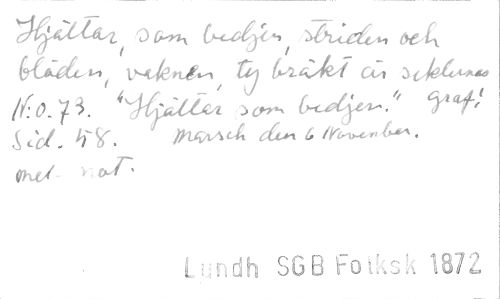 Hjältar, som bedjen, striden och
blöden, vaknen, ty bräkt är seklernas
N:o. 73. "Hjältar som bedjen." graf!
Sid. 58. Marsch den 6 November.
mel. not.
Lundh SGB Folksk 1872